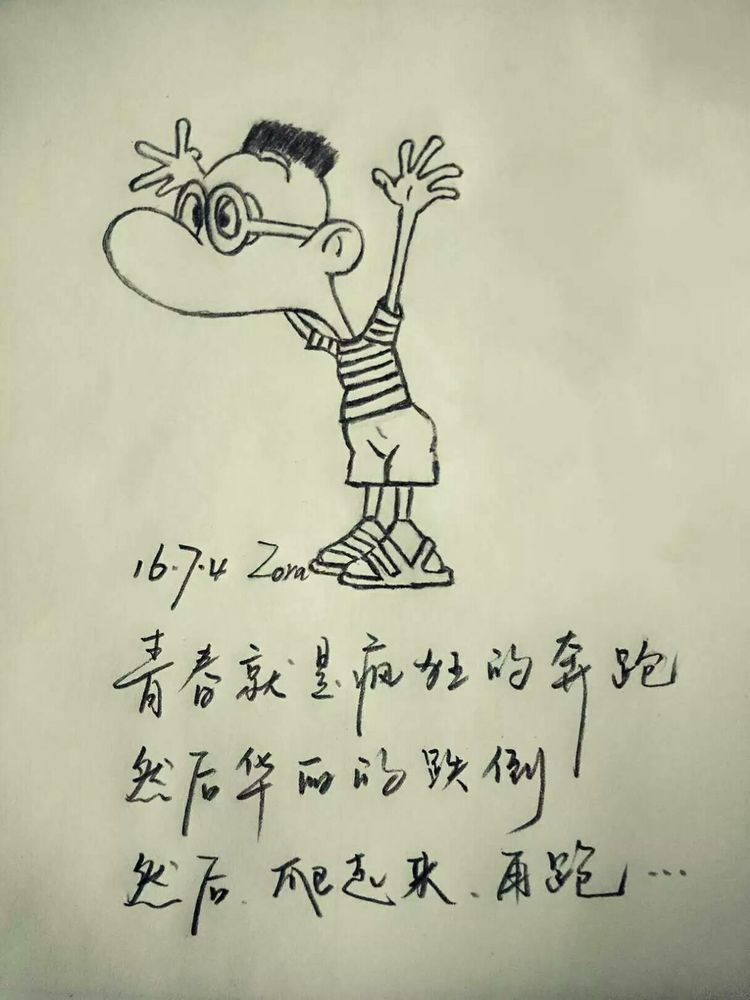 16.7.4 Zora
青春就是疯狂的奔跑
然后华丽的跌倒
然后.爬起来.再跑…